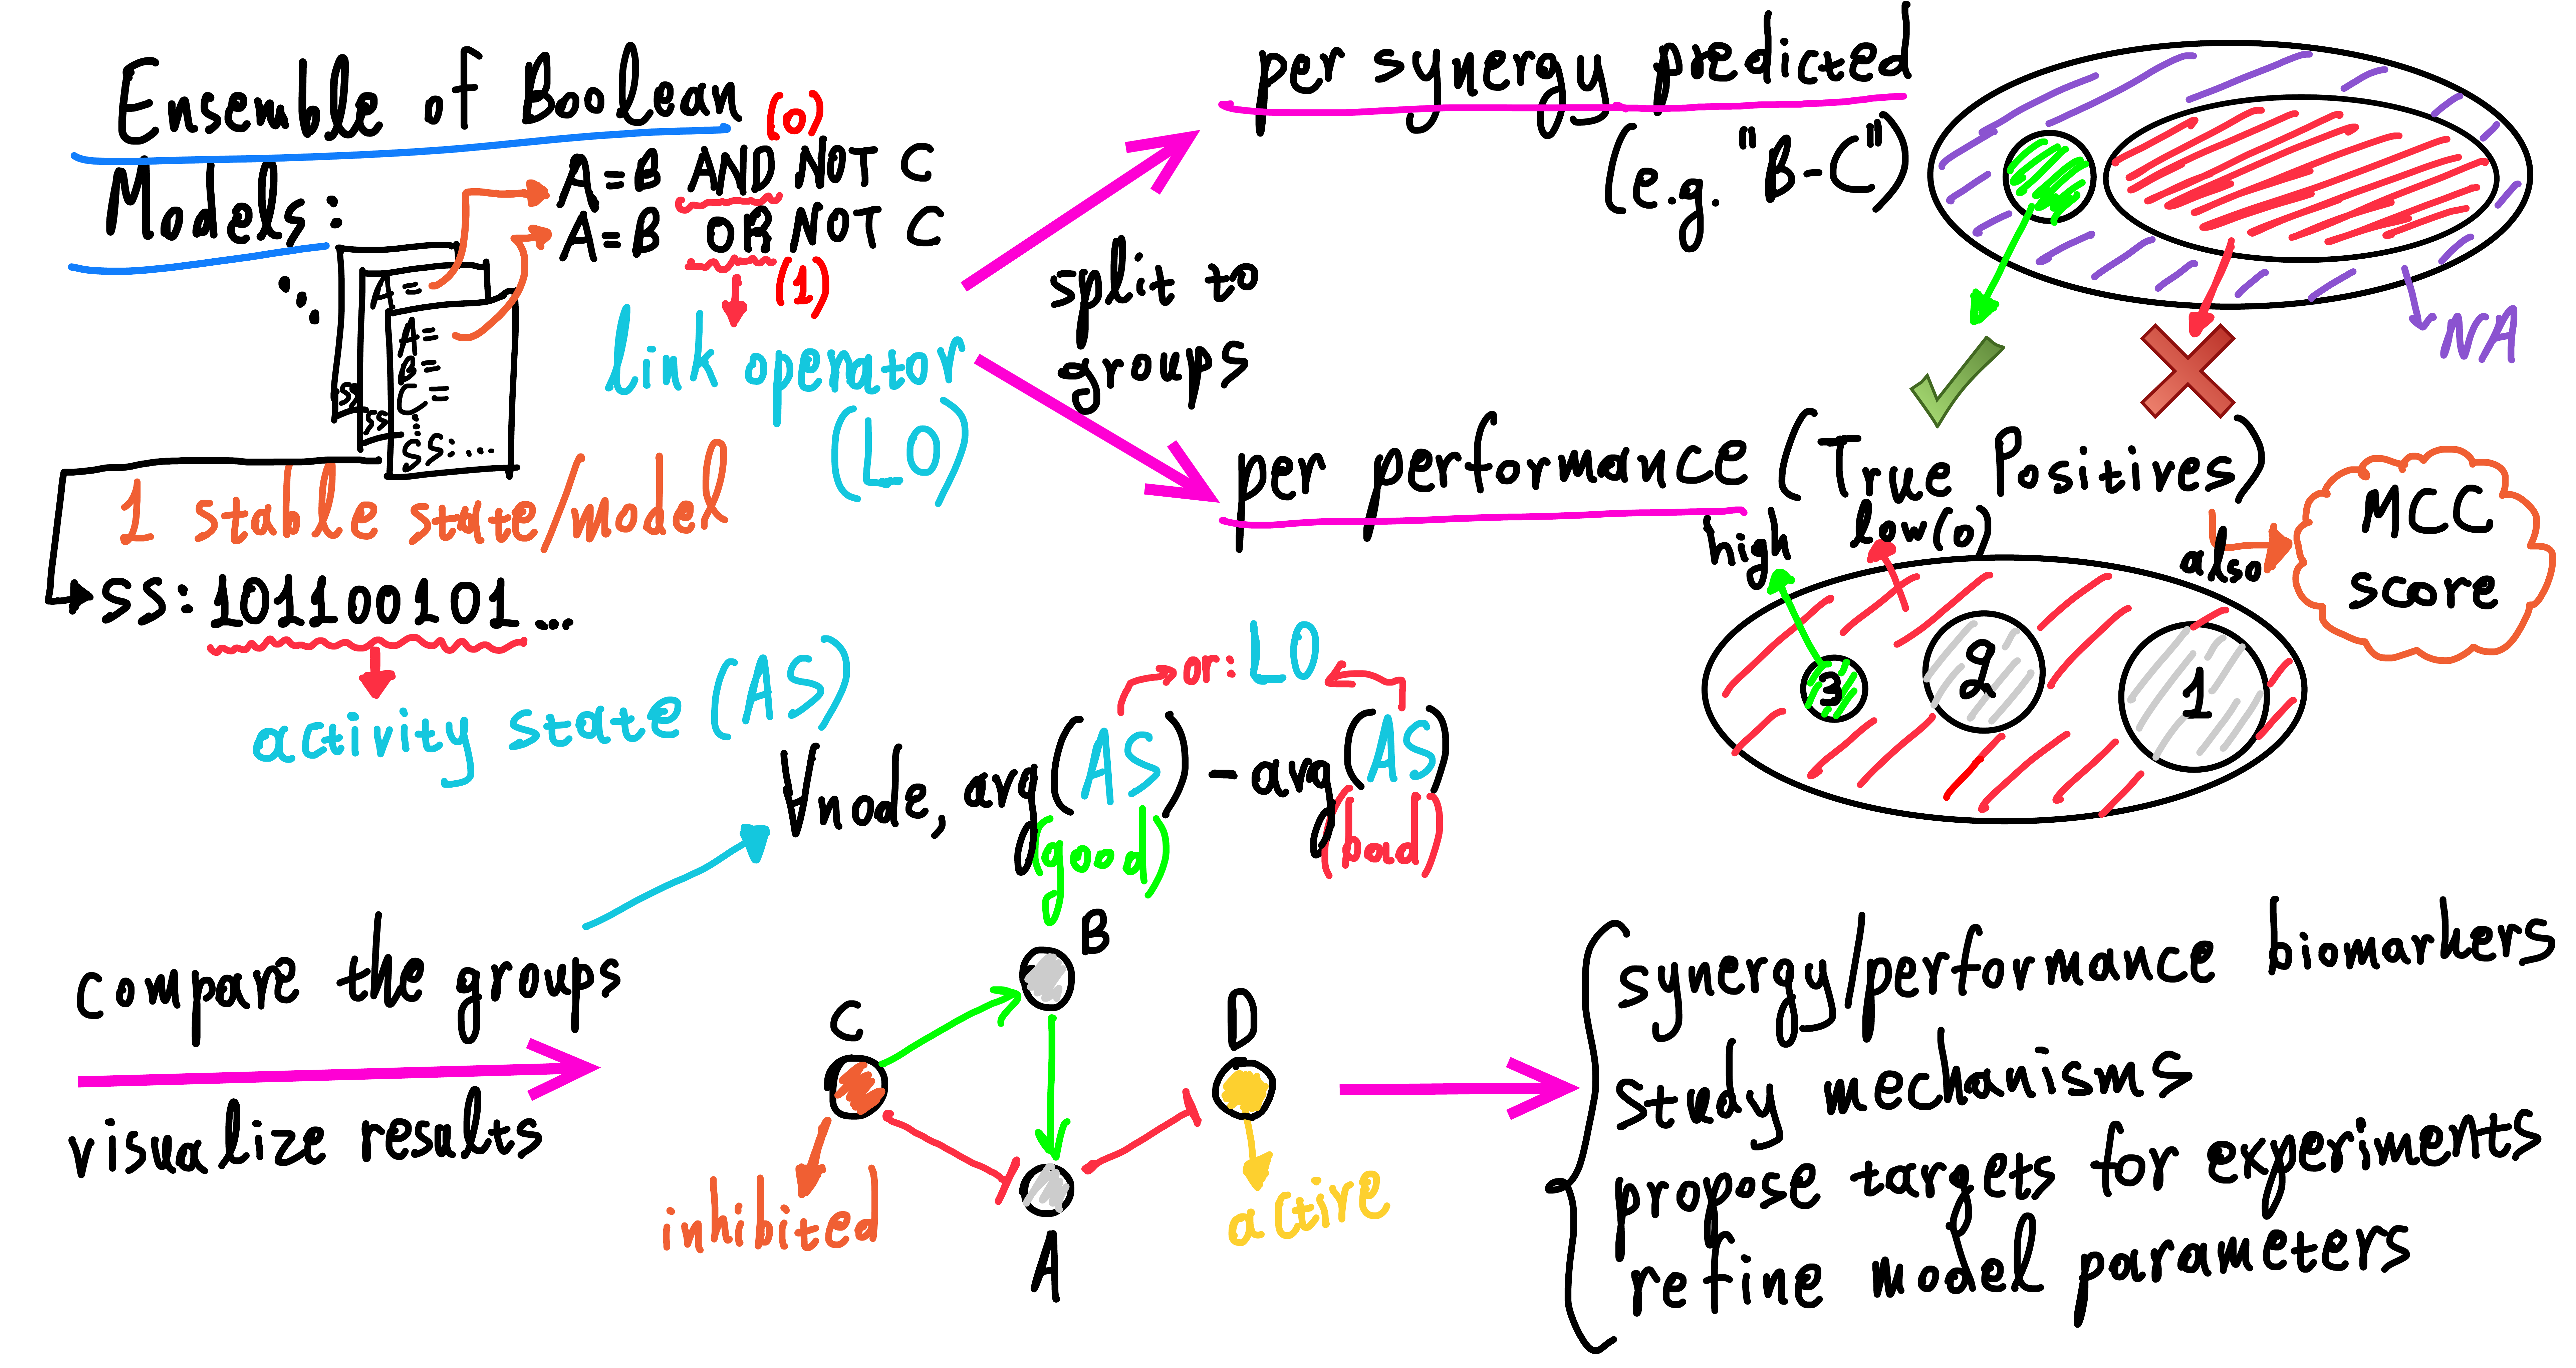 Ensemble of Boolean
Models:
(0)
A=B AND NOT C
A=B OR NOT C
(1)
link operator
(LO)
A=
A=
B=
C=
⋮
SS:...
SS
SS
1 stable state/model
SS: 101100101...
activity state (AS)
split to
groups
per synergy predicted
(e.g. "B-C")
NA
per performance (True Positives)
high
low(0)
also
MCC
score
3
2
1
or: LO
∀node, avg(AS) - avg(AS)
(good)
(bad)
compare the groups
visualize results
B
C
D
A
inhibited
active
synergy/performance biomarkers
study mechanisms
propose targets for experiments
refine model parameters